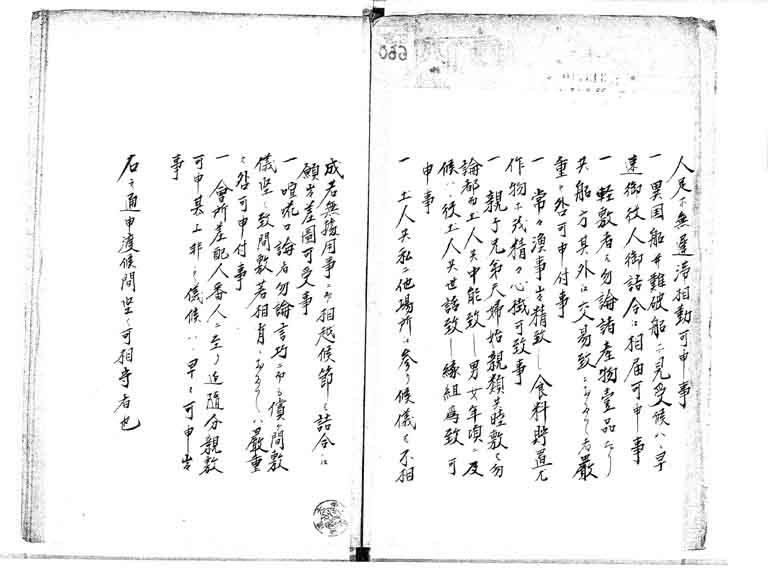 人足等無遅滞相勤可申事
一 異国船并難破船等見受候ハヽ早
速御役人御詰合江相届可申事
一 軽敷者ハ勿論諸産物壹品たり
共船方其外江交易致間敷
重々咎可申付事
一 常々漁事出精致し食料貯置
作物等残精々心掛可致事
一 親子兄弟夫婦始親類共睦敷ハ勿
論都而土人共中能致し男女年頃ニ及
候ハヽ役土人共世話致し縁組為致可
申事
一 土人共私ニ他場所江参り候儀ハ不相
成若無據用事ニ而相越候節ハ詰合江
願出差圖可受事
一 喧咙口論者勿論言巧ニ而も償ヶ間敷
儀堅く致間敷若相背ハ嚴重
ニ咎可申付事
一 會所差配人番人ニ至る迄随分親敷
可申其上非之儀候ハヽ早々可申出
事
右之通申渡候間堅く可相守者也